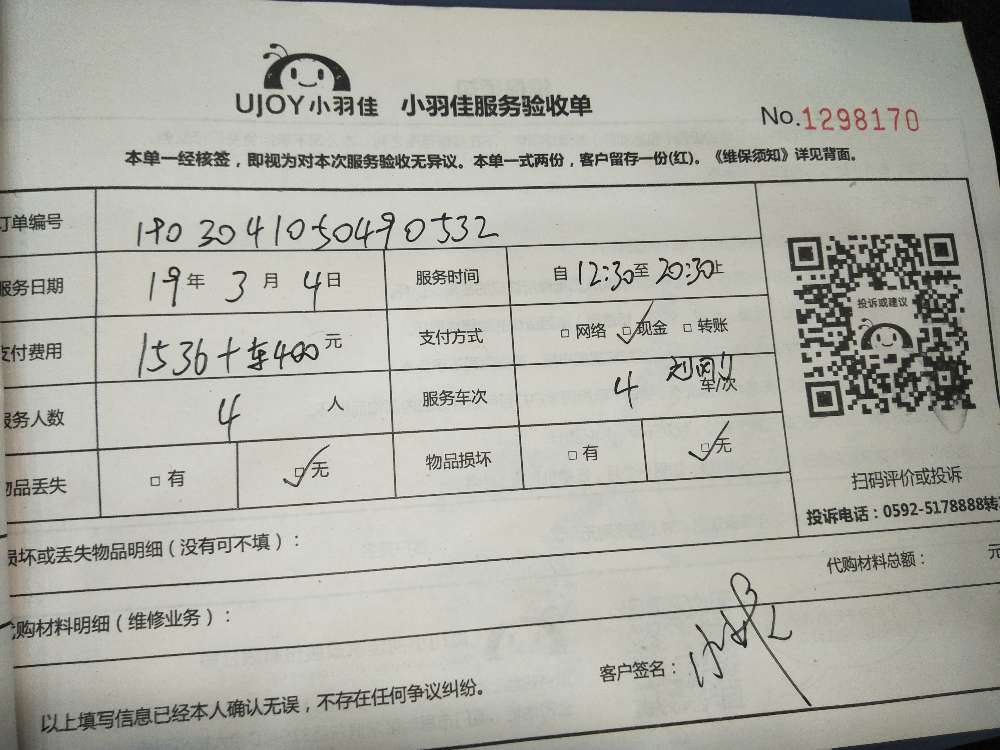 UJOY小羽佳 小羽佳服务验收单
No.1298170
本单一经核签，即视为对本次服务验收无异议。本单一式两份，客户留存一份(红)。《维保须知》详见背面。
订单编号 1903041050490532
服务日期 19年 3月 4日 服务时间 自12:30至20:30止
支付费用 1536+车400元 支付方式 □网络 □现金 □转账
服务人数 4人 服务车次 4 车/次
物品丢失 □有 □无 物品损坏 □有 □无
投诉或建议
扫码评价或投诉
投诉电话：0592-5178888转
损坏或丢失物品明细（没有可不填）：
代购材料明细（维修业务）： 代购材料总额： 元
以上填写信息已经本人确认无误，不存在任何争议纠纷。 客户签名：